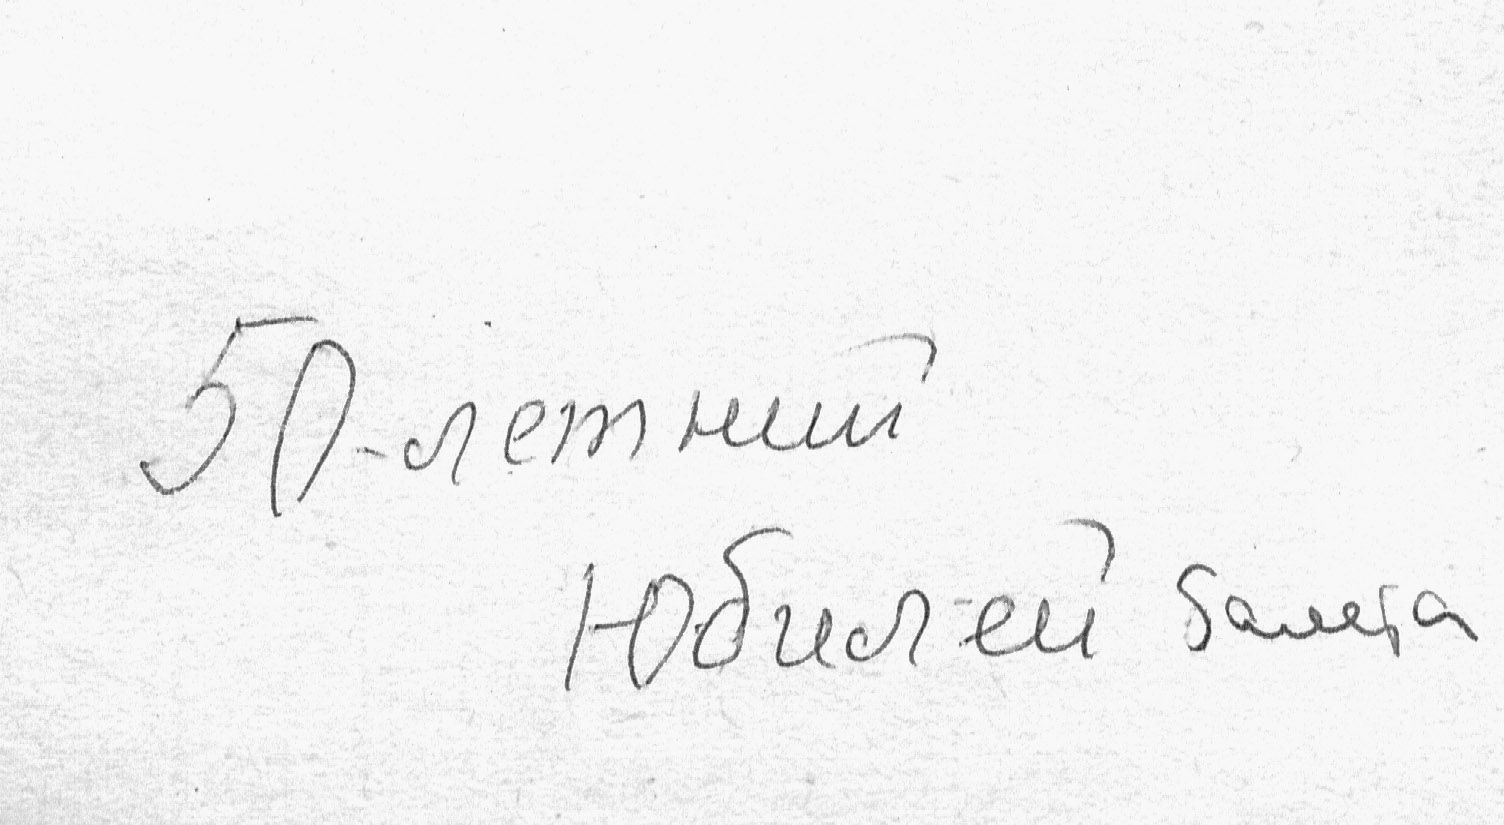 50-летний
Юбилей балета